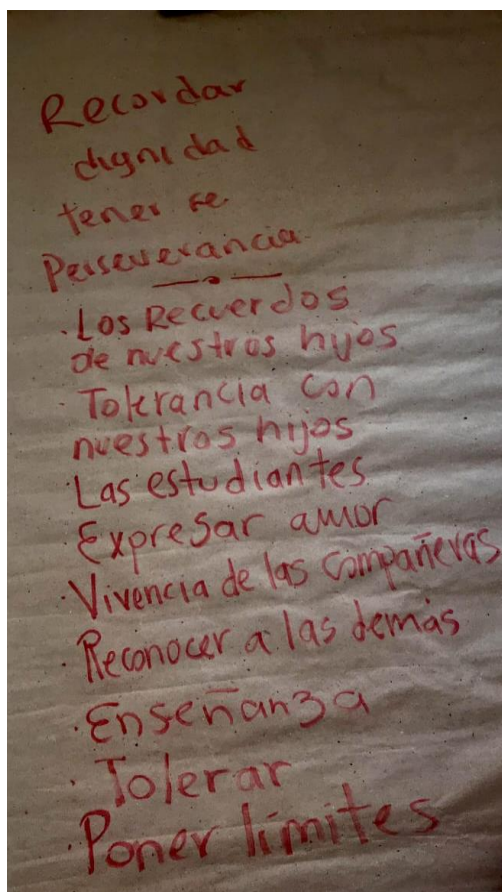 Recordar
dignidad
tener fe
Perseverancia
— . —
· Los Recuerdos
de nuestros hijos
· Tolerancia con
nuestros hijos
· Las estudiantes
· Expresar amor
· Vivencia de las compañeras
· Reconocer a las demás
· Enseñanza
· Tolerar
· Poner límites